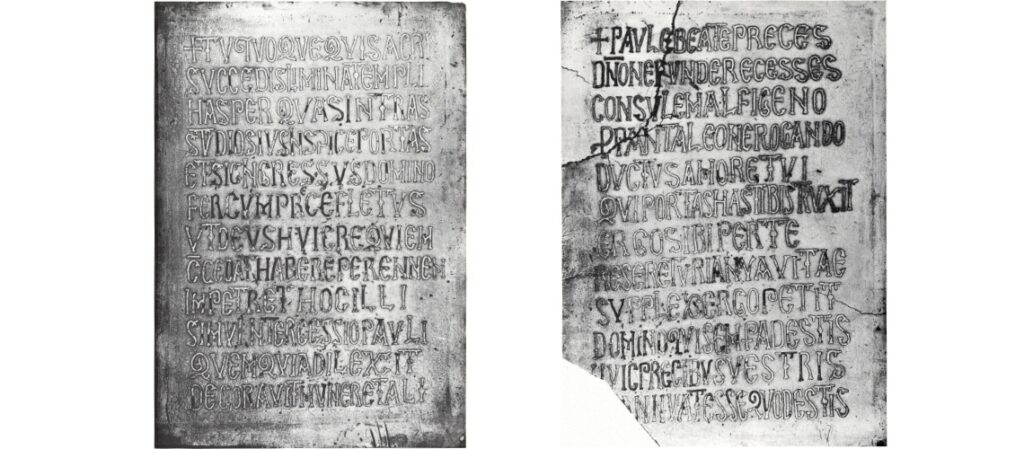 +TVQVOQVEQVISACRI
SVCCEDISLIMINATEMPLI
HASPERQVASINTRAS
SVDIOSIVSNSPICEPORTAS
ETSICNGRESSVSDOMINO
FERCVMPRECEFLETVS
VTDEVSHVICREQVIEM
C̄CEDATHABEREPERENNEM
IMPETRETHOCILLI
SIMVLNTERCESSIOPAVLI
QVEMQVIADILEXIT
DECORAVITMVNERETALI
+PAVLEBEATEPRECES
DN̄ONEFVNDERECESSES
CONSVLEMALFIGENO
PPANTALEONEROGANDO
DVCTVSAMORETVI
QVIPORTASHASTIBISTRVXIT
ERGOSIBIPERTE
RESERETVRIANVAVITAE
SVPPLEXERGOPETIT
DOMINOQVISEMPADESTIS
HVICPRECIBVSVESTRIS
ANNVATESSEQVODESTIS